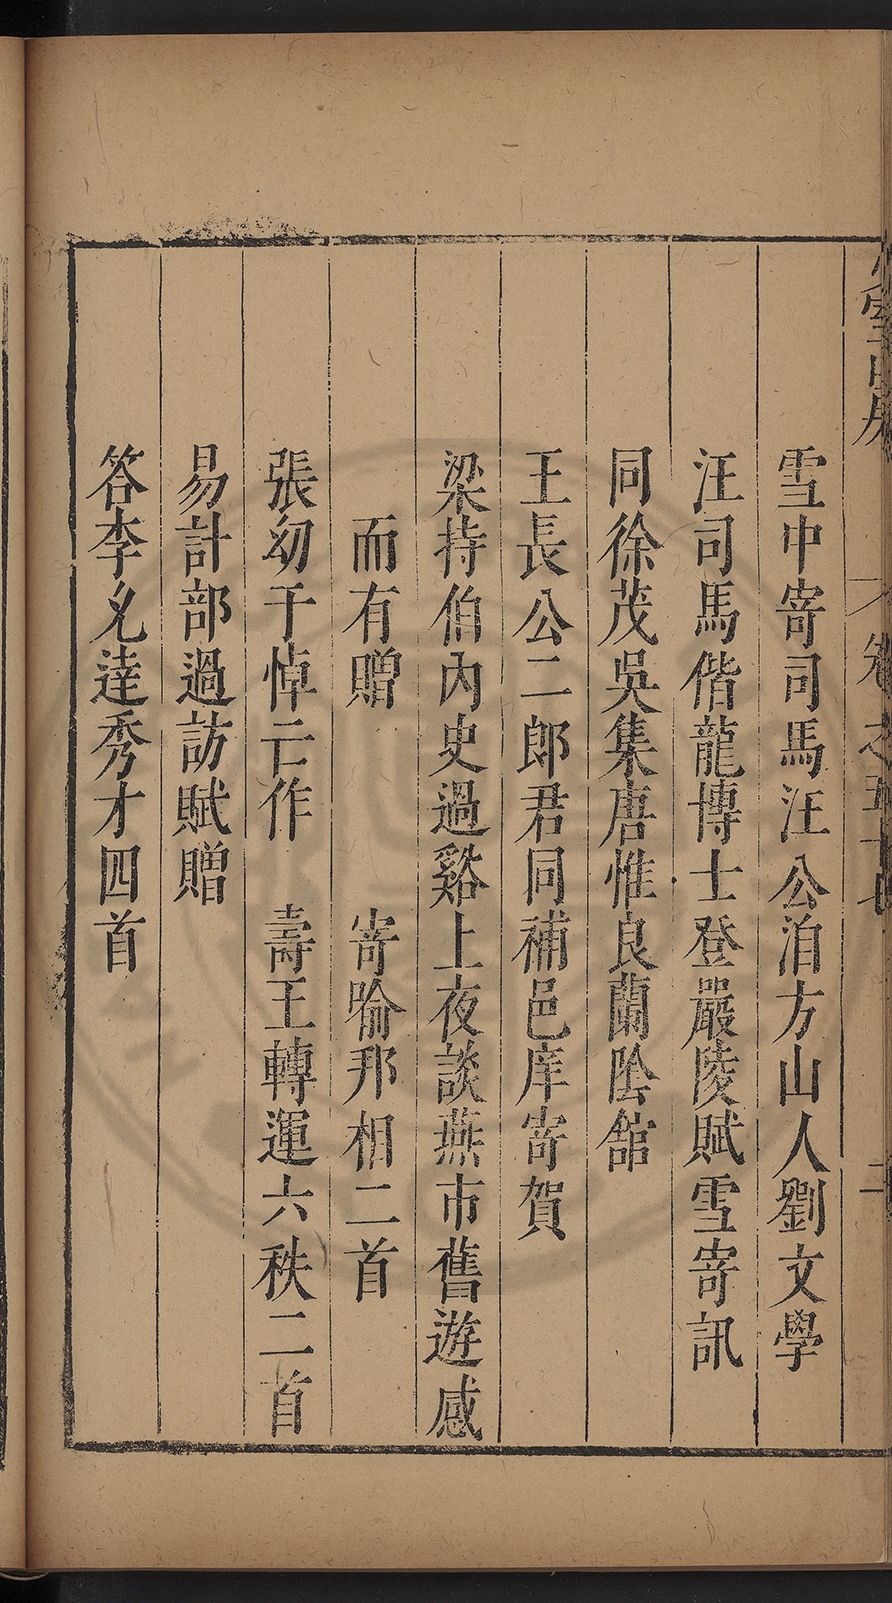 卷之五十七
二
雪中寄司馬汪公洎方山人劉文學
汪司馬偕龍博士登嚴陵賦雪寄訊
同徐茂吳集唐惟良蘭陰館
王長公二郎君同補邑庠寄賀
梁持伯內史過谿上夜談燕市舊遊感
而有贈 寄喻邦相二首
張幼于悼亡作 壽王轉運六秩二首
易計部過訪賦贈
答李允達秀才四首